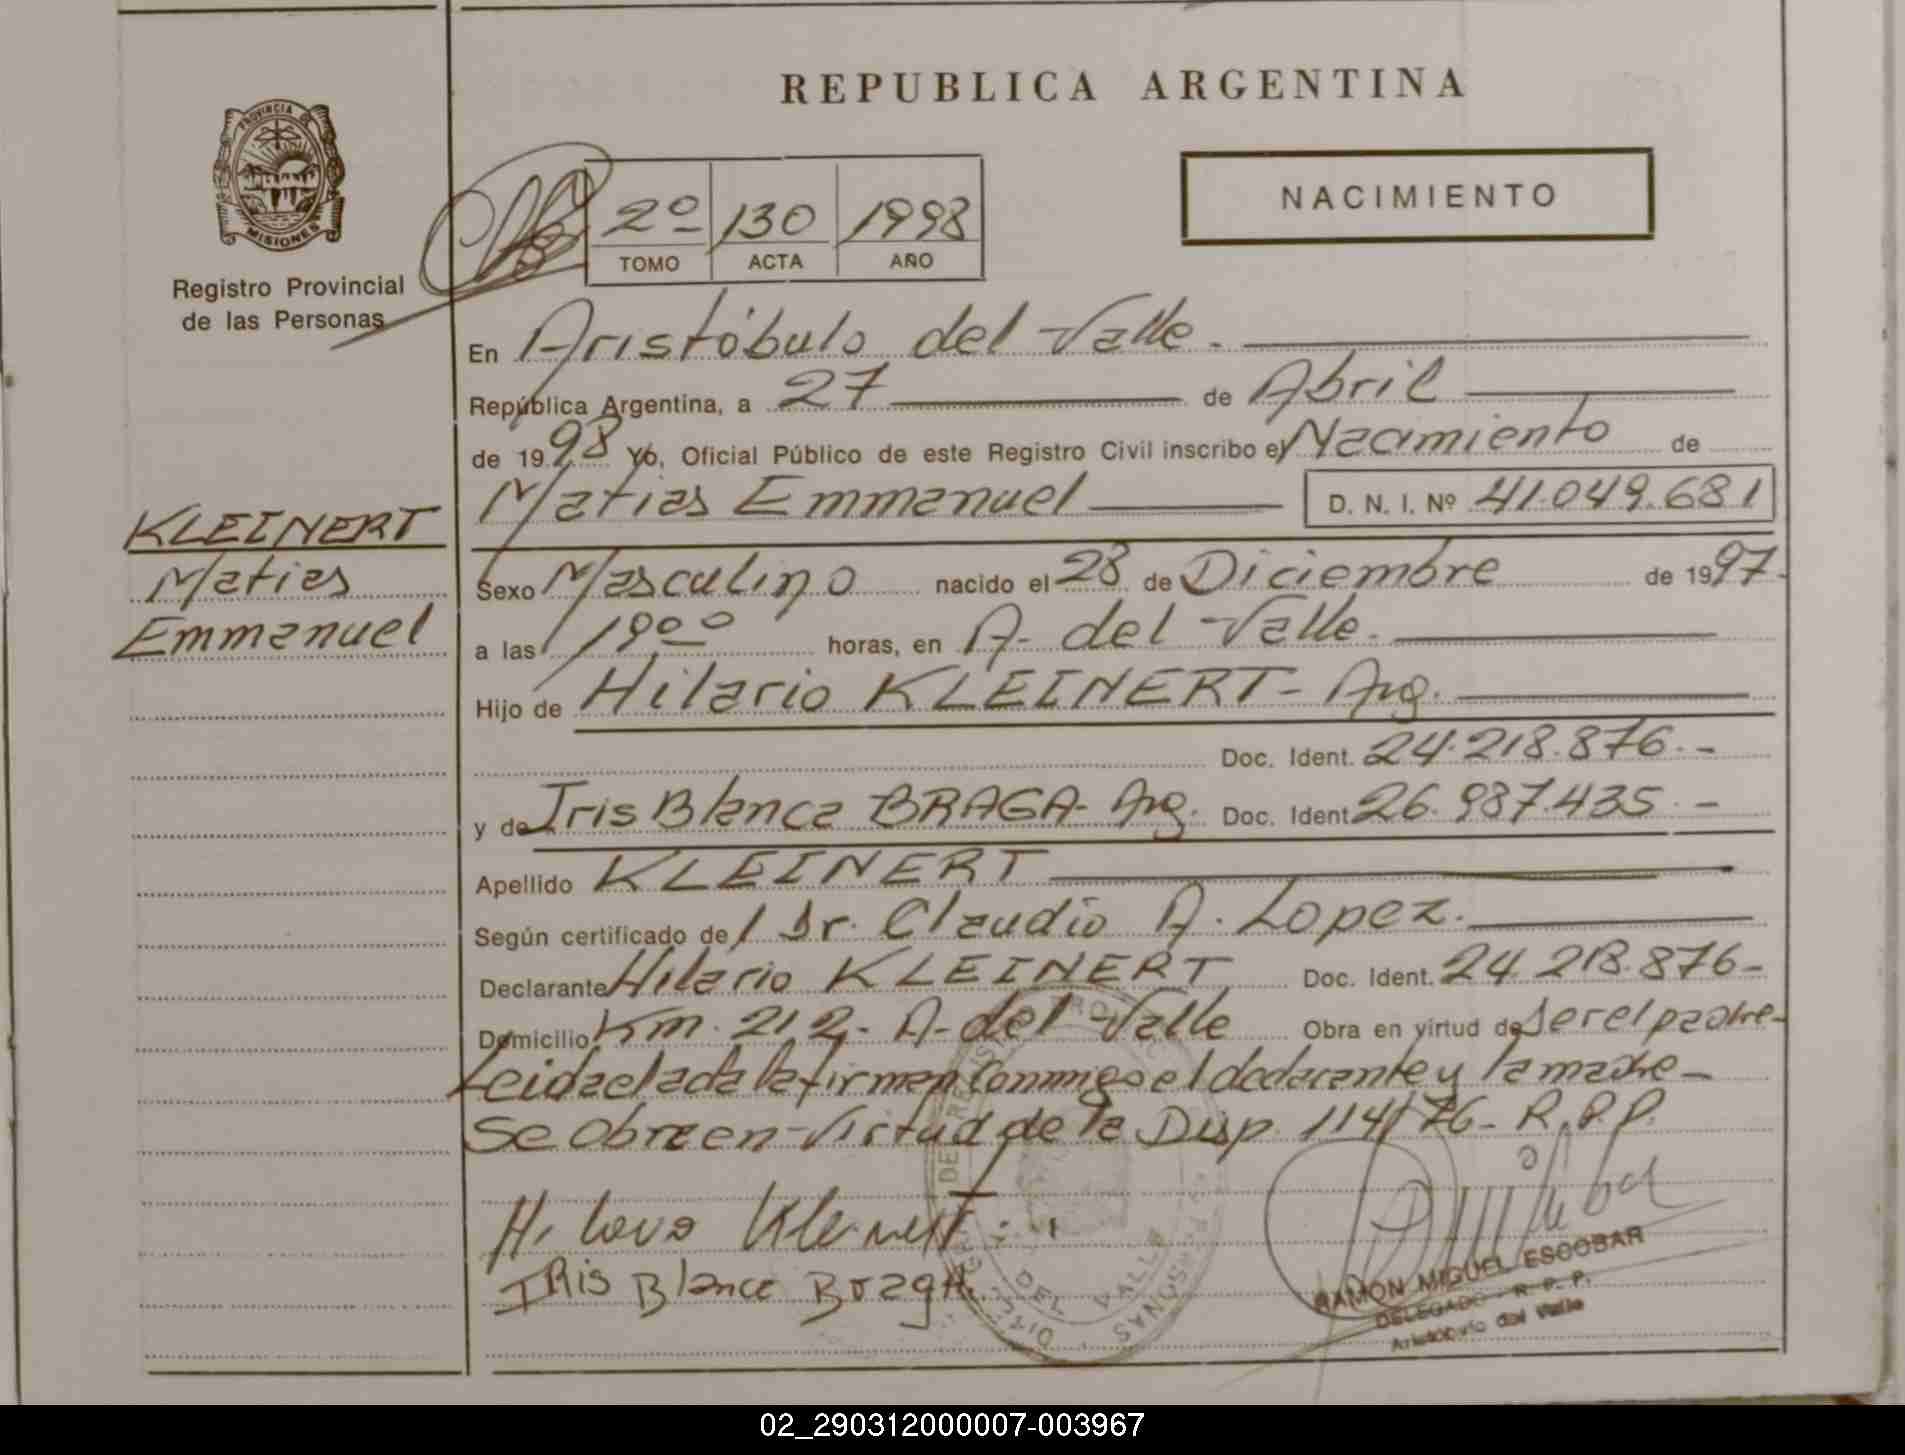 REPUBLICA ARGENTINA
PROVINCIA DE
MISIONES
Registro Provincial
de las Personas
2º 130 1998
TOMO ACTA AÑO
NACIMIENTO
En Aristóbulo del Valle.
República Argentina, a 27 de Abril
de 1998 Yo, Oficial Público de este Registro Civil inscribo el Nacimiento de
Matias Emmanuel D. N. I. Nº 41.049.681
KLEINERT
Matias
Emmanuel
Sexo Masculino nacido el 28 de Diciembre de 1997.
a las 19ºº horas, en A. del Valle.
Hijo de Hilario KLEINERT- Arg.
Doc. Ident. 24.218.876.-
y de Iris Blanca BRAGA- Arg. Doc. Ident. 26.987.435.-
Apellido KLEINERT
Según certificado del Dr. Claudio A. Lopez.
Declarante Hilario KLEINERT Doc. Ident. 24.218.876-
Domicilio Km. 212- A- del Valle Obra en virtud de ser el padre-
Leida el acta la firman conmigo el declarante y la madre-
Se obra en Virtud de la Disp. 114/76- R.P.P.
Kleinert
IRis Blanca Braga
DEL VALLE
RAMON MIGUEL ESCOBAR
DELEGADO R. P. P.
Aristóbulo del Valle
02_290312000007-003967